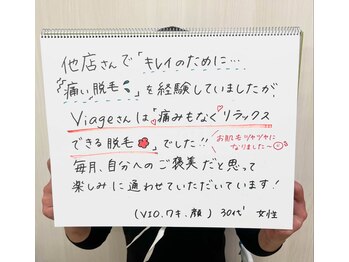 他店さんで「キレイのために…
"痛い脱毛"」を経験していましたが、
Viageさんは"痛みもなくリラックス
できる脱毛"でした!!
お肌もツヤツヤに
なりました〜
毎月、自分へのご褒美だと思って
楽しみに通わせていただいています!
(VIO.ワキ.顔) 30代 女性